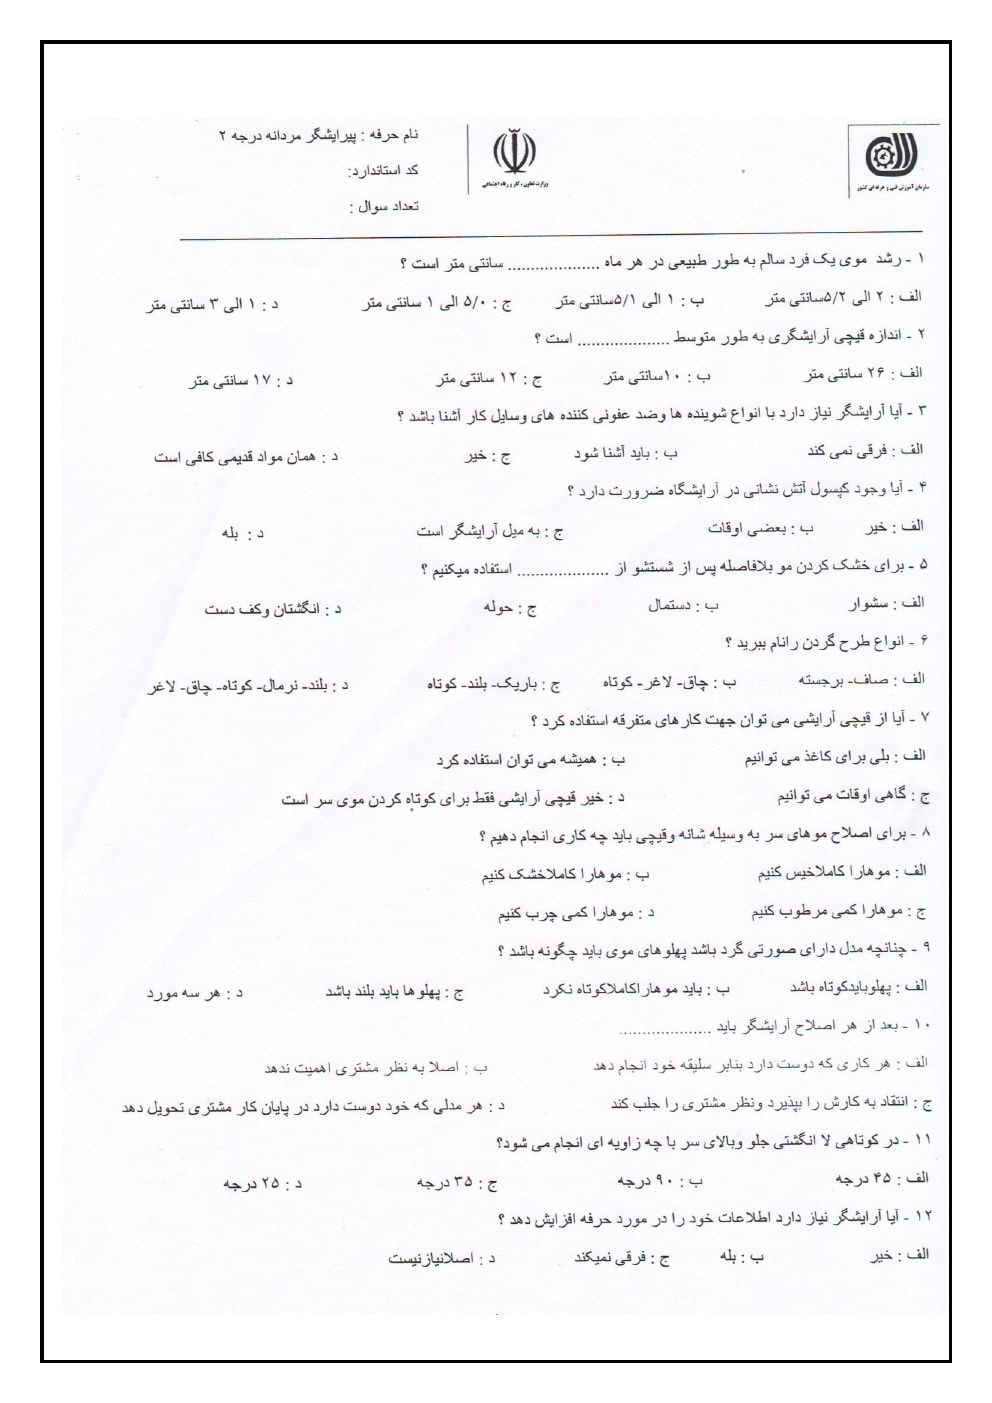 سازمان آموزش فنی و حرفه ای کشور
وزارت تعاون ، کار و رفاه اجتماعی
نام حرفه : پیرایشگر مردانه درجه ۲
کد استاندارد:
تعداد سوال :
۱ - رشد موی یک فرد سالم به طور طبیعی در هر ماه .................... سانتی متر است ؟
الف : ۲ الی ۵/۲سانتی متر ب : ۱ الی ۵/۱سانتی متر ج : ۵/۰ الی ۱ سانتی متر د : ۱ الی ۳ سانتی متر
۲ - اندازه قیچی آرایشگری به طور متوسط .................... است ؟
الف : ۲۶ سانتی متر ب : ۱۰سانتی متر ج : ۱۲ سانتی متر د : ۱۷ سانتی متر
۳ - آیا آرایشگر نیاز دارد با انواع شوینده ها وضد عفونی کننده های وسایل کار آشنا باشد ؟
الف : فرقی نمی کند ب : باید آشنا شود ج : خیر د : همان مواد قدیمی کافی است
۴ - آیا وجود کپسول آتش نشانی در آرایشگاه ضرورت دارد ؟
الف : خیر ب : بعضی اوقات ج : به میل آرایشگر است د : بله
۵ - برای خشک کردن مو بلافاصله پس از شستشو از .................... استفاده میکنیم ؟
الف : سشوار ب : دستمال ج : حوله د : انگشتان وکف دست
۶ - انواع طرح گردن رانام ببرید ؟
الف : صاف- برجسته ب : چاق- لاغر- کوتاه ج : باریک- بلند- کوتاه د : بلند- نرمال- کوتاه- چاق- لاغر
۷ - آیا از قیچی آرایشی می توان جهت کارهای متفرقه استفاده کرد ؟
الف : بلی برای کاغذ می توانیم ب : همیشه می توان استفاده کرد
ج : گاهی اوقات می توانیم د : خیر قیچی آرایشی فقط برای کوتاه کردن موی سر است
۸ - برای اصلاح موهای سر به وسیله شانه وقیچی باید چه کاری انجام دهیم ؟
الف : موهارا کاملاخیس کنیم ب : موهارا کاملاخشک کنیم
ج : موهارا کمی مرطوب کنیم د : موهارا کمی چرب کنیم
۹ - چنانچه مدل دارای صورتی گرد باشد پهلوهای موی باید چگونه باشد ؟
الف : پهلوبایدکوتاه باشد ب : باید موهاراکاملاکوتاه نکرد ج : پهلوها باید بلند باشد د : هر سه مورد
۱۰ - بعد از هر اصلاح آرایشگر باید ....................
الف : هر کاری که دوست دارد بنابر سلیقه خود انجام دهد ب : اصلا به نظر مشتری اهمیت ندهد
ج : انتقاد به کارش را بپذیرد ونظر مشتری را جلب کند د : هر مدلی که خود دوست دارد در پایان کار مشتری تحویل دهد
۱۱ - در کوتاهی لا انگشتی جلو وبالای سر با چه زاویه ای انجام می شود؟
الف : ۴۵ درجه ب : ۹۰ درجه ج : ۳۵ درجه د : ۲۵ درجه
۱۲ - آیا آرایشگر نیاز دارد اطلاعات خود را در مورد حرفه افزایش دهد ؟
الف : خیر ب : بله ج : فرقی نمیکند د : اصلانیازنیست